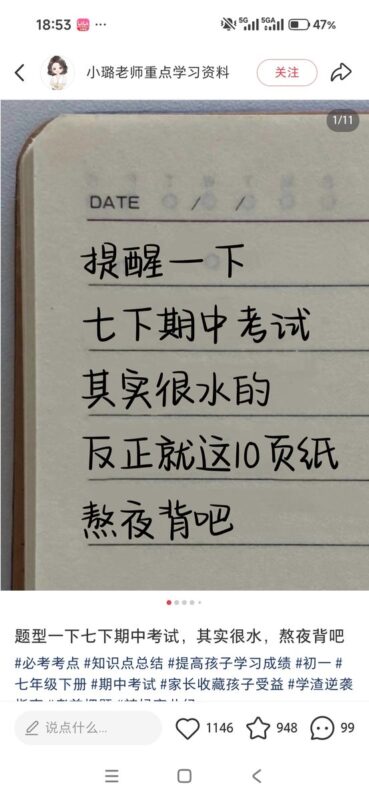 18:53
5G 5GA 47%
小璐老师重点学习资料
关注
1/11
DATE / /
提醒一下
七下期中考试
其实很水的
反正就这10页纸
熬夜背吧
题型一下七下期中考试，其实很水，熬夜背吧
#必考考点 #知识点总结 #提高孩子学习成绩 #初一 #
七年级下册 #期中考试 #家长收藏孩子受益 #学渣逆袭
说点什么...
1146
948
99